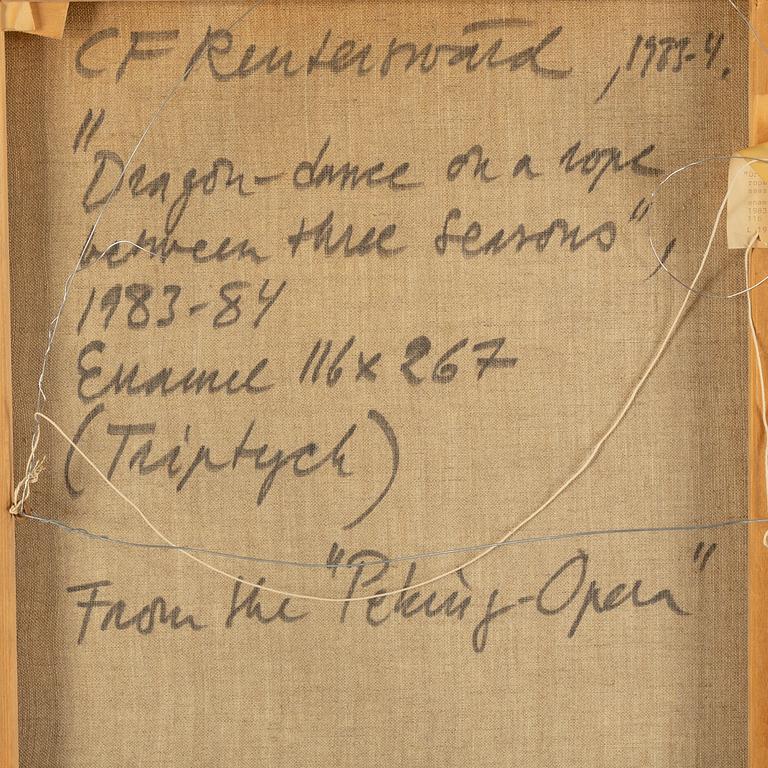 CF Reuterswärd, 1983-4.
"Dragon-dance on a rope
between three seasons",
1983-84
Enamel 116x267
(Triptych)
From the "Peking-Opera"